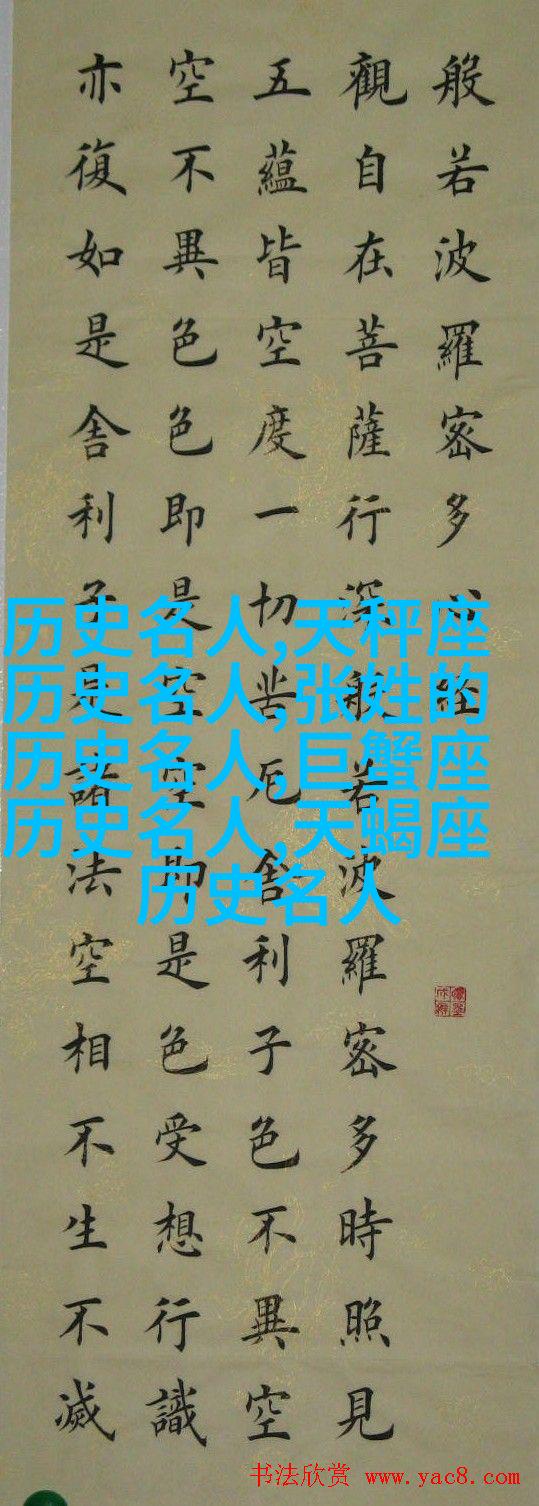 般若波羅密多心經
觀自在菩薩行深般若波羅密多時照見
五蘊皆空度一切苦厄舍利子色不異空
空不異色色即是空空即是色受想行識
亦復如是舍利子是諸法空相不生不滅
历史名人,天秤座
历史名人,张姓的
历史名人,巨蟹座
历史名人,天蝎座
历史名人
书法欣赏 www.yac8.com